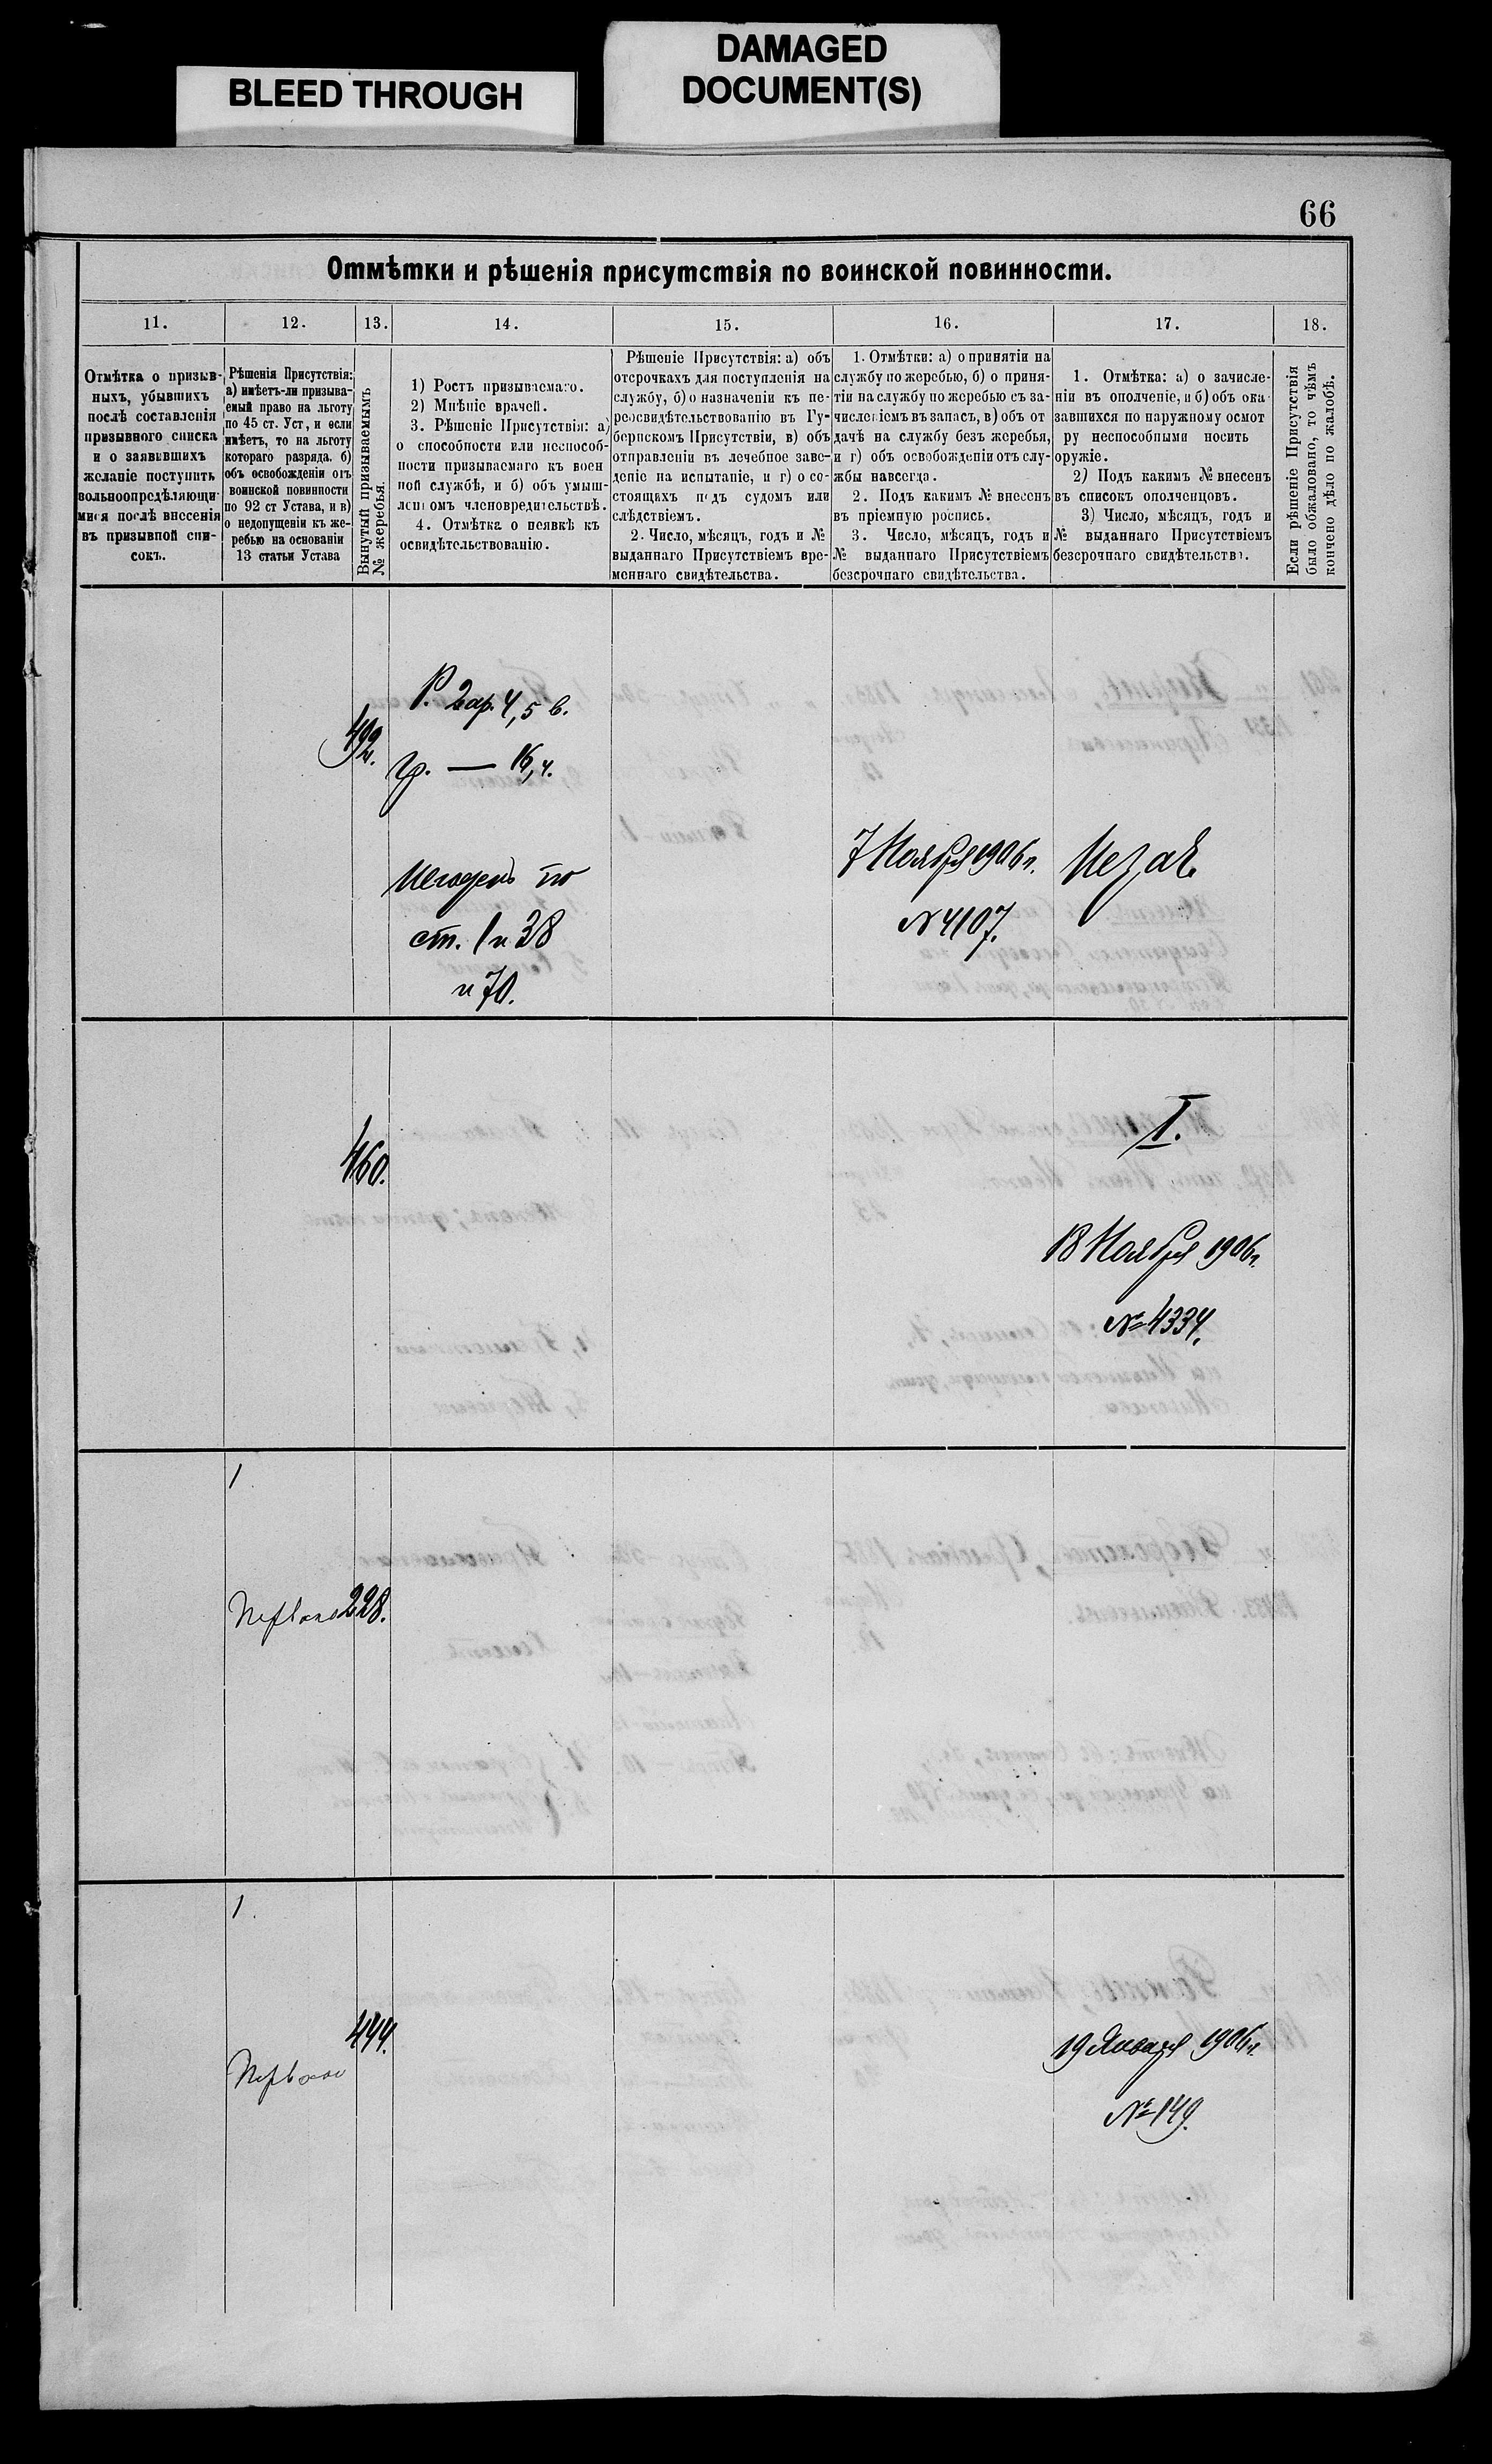 BLEED THROUGH
DAMAGED
DOCUMENT(S)
66
Отмѣтки и рѣшенія присутствія по воинской повинности.
11.
12.
13.
14.
15.
16.
17.
18.
Отмѣтка о призыв-
ныхъ, убывшихъ
послѣ составленія
призывного списка
и о заявившихъ
желаніе поступить
вольноопредѣляющи-
мися послѣ внесенія
въ призывной спи-
сокъ.
Рѣшенія Присутствія:
а) имѣетъ-ли призыва-
емый право на льготу
по 45 ст. Уст, и если
имѣетъ, то на льготу
котораго разряда. б)
объ освобожденіи отъ
воинской повинности
по 92 ст Устава, и в)
о недопущеніи къ же-
ребью на основаніи
13 статьи Устава
Вынутый призываемымъ
№ жеребья.
1) Ростъ призываемаго.
2) Мнѣніе врачей.
3. Рѣшеніе Присутствія: а)
о способности или неспособ-
ности призываемаго къ воен
ной службѣ, и б) объ умыш-
леномъ членовредительствѣ.
4. Отмѣтка о неявкѣ къ
освидѣтельствованію.
Рѣшеніе Присутствія: а) объ
отсрочкахъ для поступленія на
службу, б) о назначеніи къ пе-
реосвидѣтельствованію въ Гу-
бернскомъ Присутствіи, в) объ
отправленіи въ лечебное заве-
деніе на испытаніе, и г) о со-
стоящихъ подъ судомъ или
слѣдствіемъ.
2. Число, мѣсяцъ, годъ и №
выданнаго Присутствіемъ вре-
меннаго свидѣтельства.
1. Отмѣтки: а) о принятіи на
службу по жеребью, б) о приня-
тіи на службу по жеребью съ за-
численіемъ въ запасъ, в) объ от
дачѣ на службу безъ жеребья,
и г) объ освобожденіи отъ слу-
жбы навсегда.
2. Подъ какимъ № внесенъ
въ пріемную роспись.
3. Число, мѣсяцъ, годъ и
№ выданнаго Присутствіемъ
безсрочнаго свидѣтельства.
1. Отмѣтка: а) о зачисле-
ніи въ ополченіе, и б) объ ока
завшихся по наружному осмот
ру неспособными носить
оружіе.
2) Подъ какимъ № внесенъ
въ списокъ ополченцовъ.
3) Число, мѣсяцъ, годъ и
№ выданнаго Присутствіемъ
безсрочнаго свидѣтельства.
Если рѣшеніе Присутствія
было обжаловано, то чѣмъ
кончено дѣло по жалобѣ.
492.
Р. 2 ар. 4, 5 в.
гр. — 16, ч.
Негоденъ по
ст. 1 и 38
и 70.
7 Ноября 1906 г.
N 4107.
460.
I.
18 Ноября 1906 г.
№ 4334.
1
Первого
228.
1.
Первого
444.
19 Января 1906 г.
№ 149.